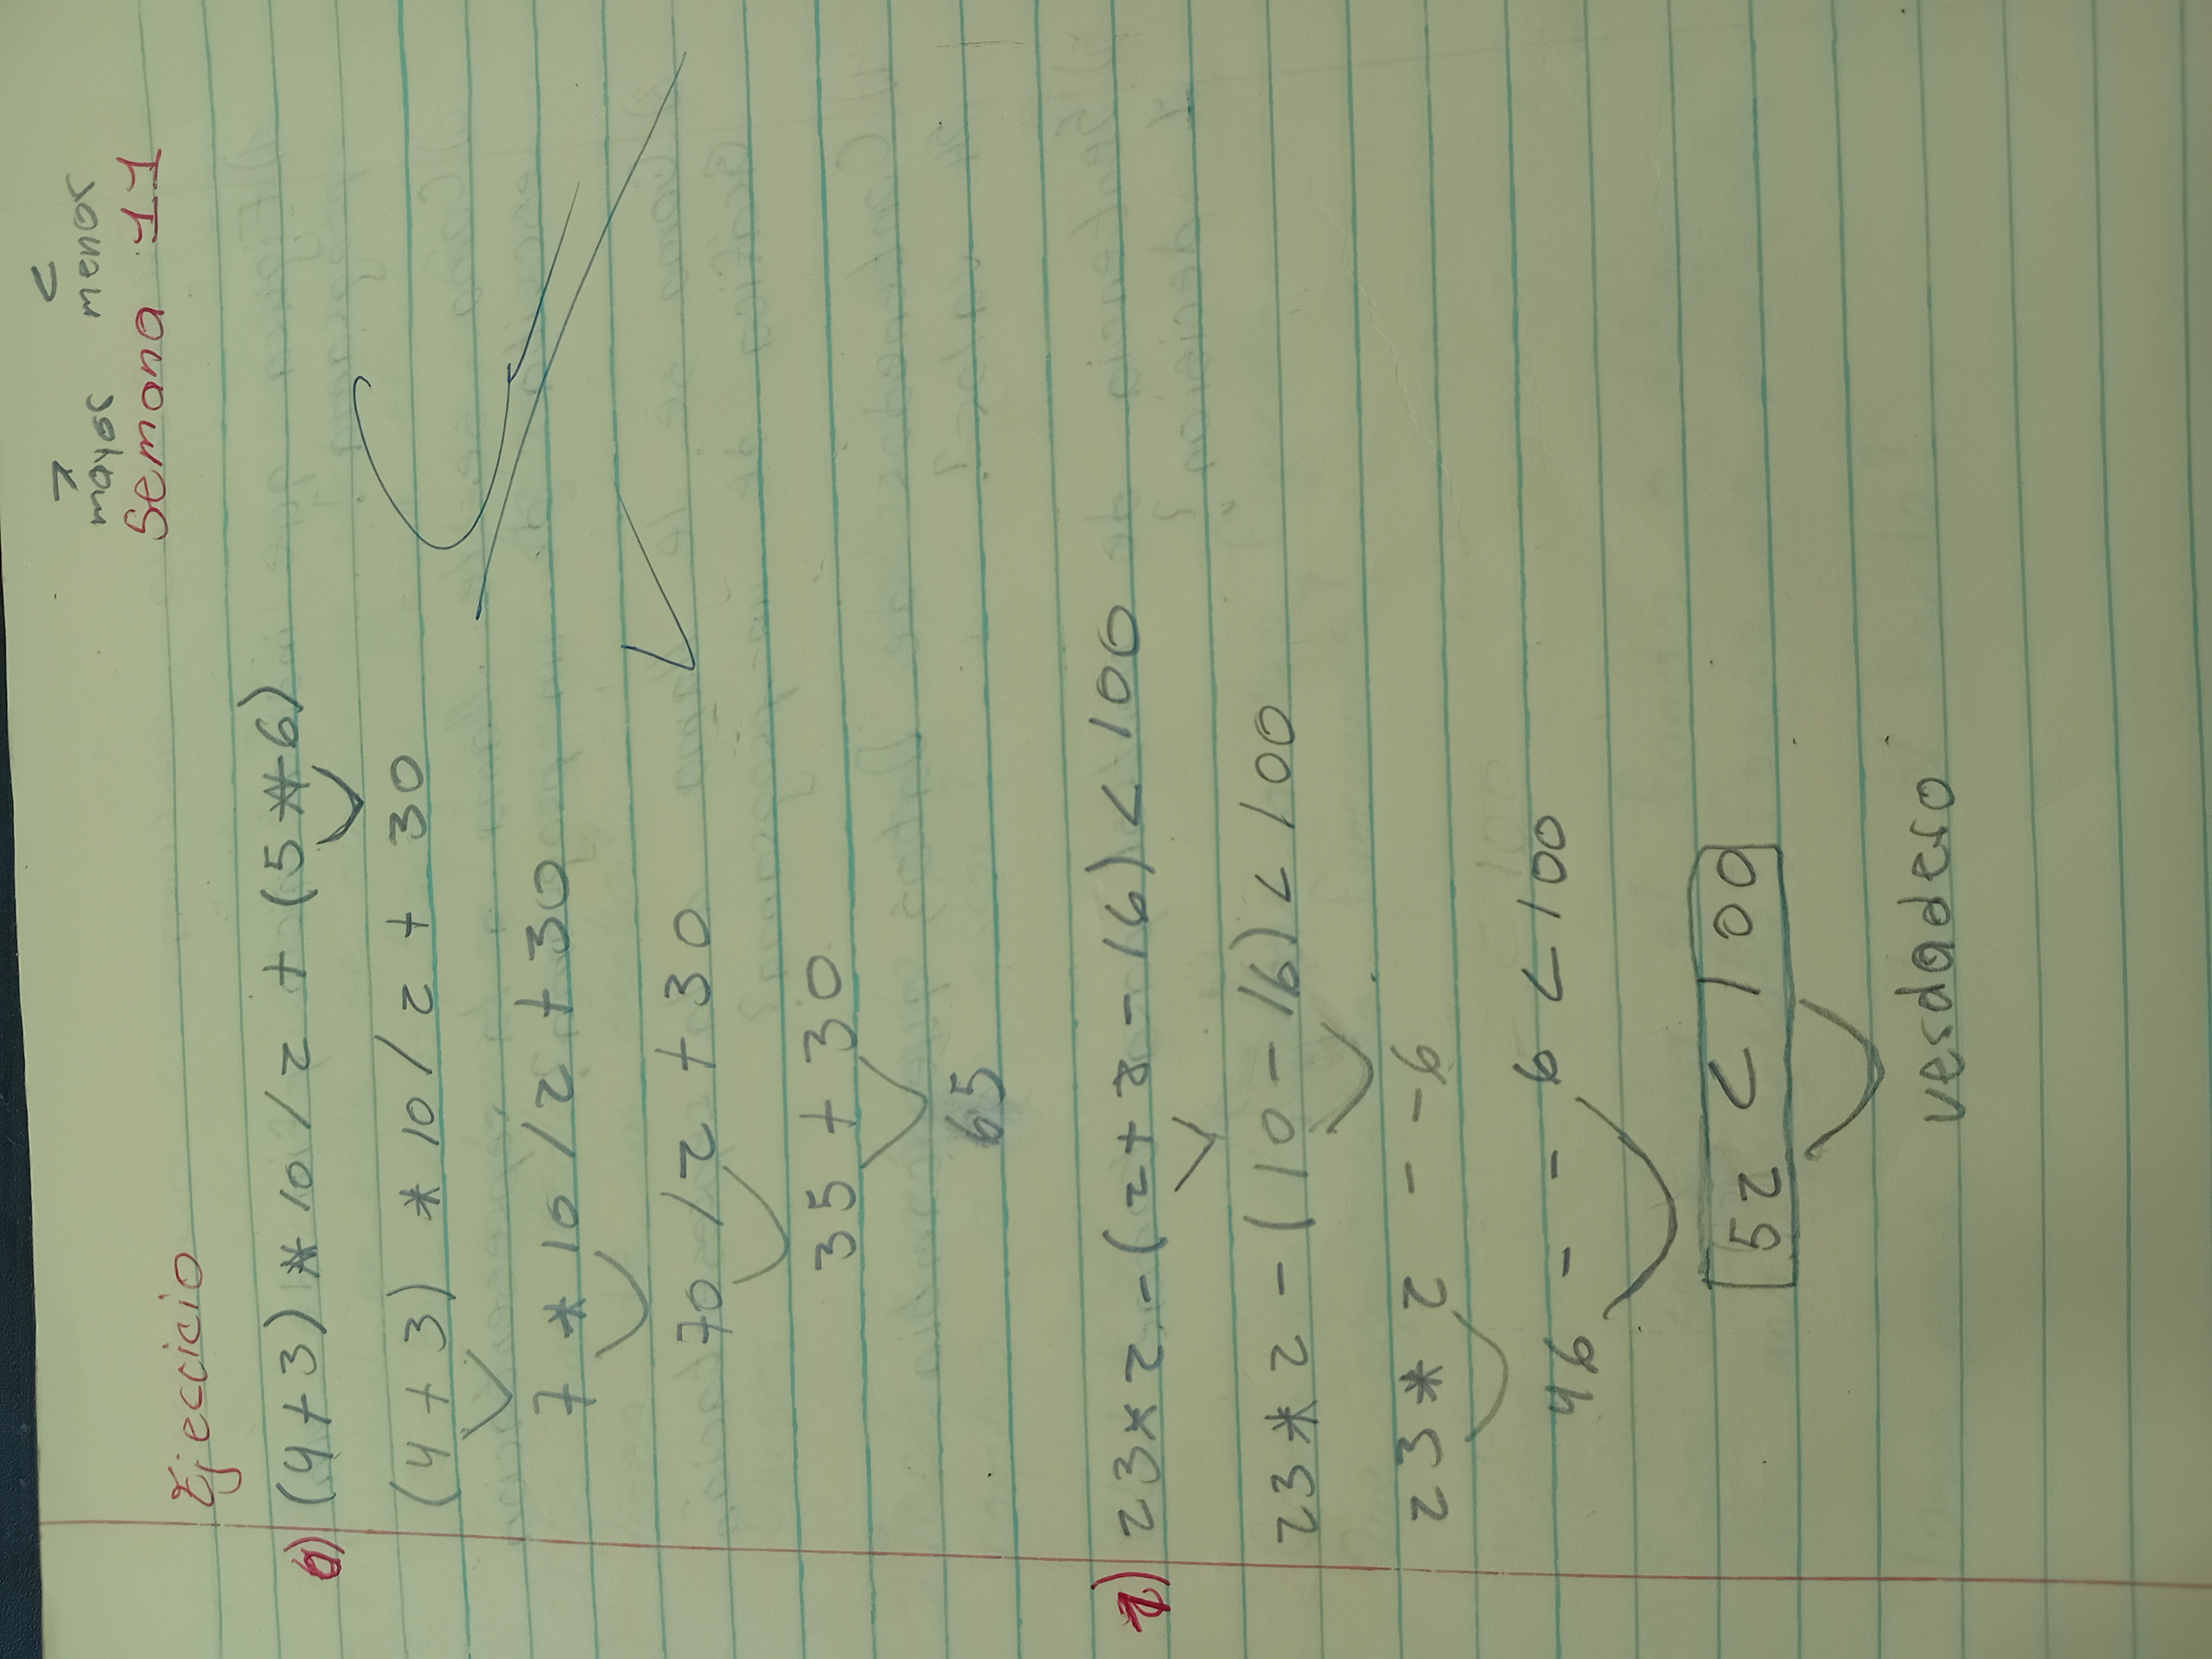 > <
mayor menor
Semana 11
Ejercicio
6) (4+3)*10/2 + (5*6)
(4+3) *10/2 + 30
7*10/2+30
70/2+30
35+30
65
7) 23*2-(2+8-16)<100
23*2-(10-16)<100
23*2 - -6
46 - - 6<100
52<100
verdadero